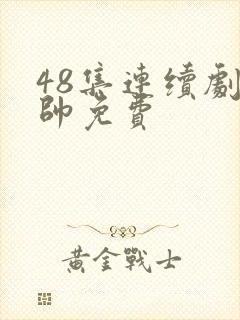 48集連續劇
帥免費
黃金戰士